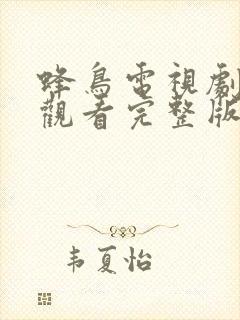 蜂鳥電視劇
觀看完整版
韦夏怡